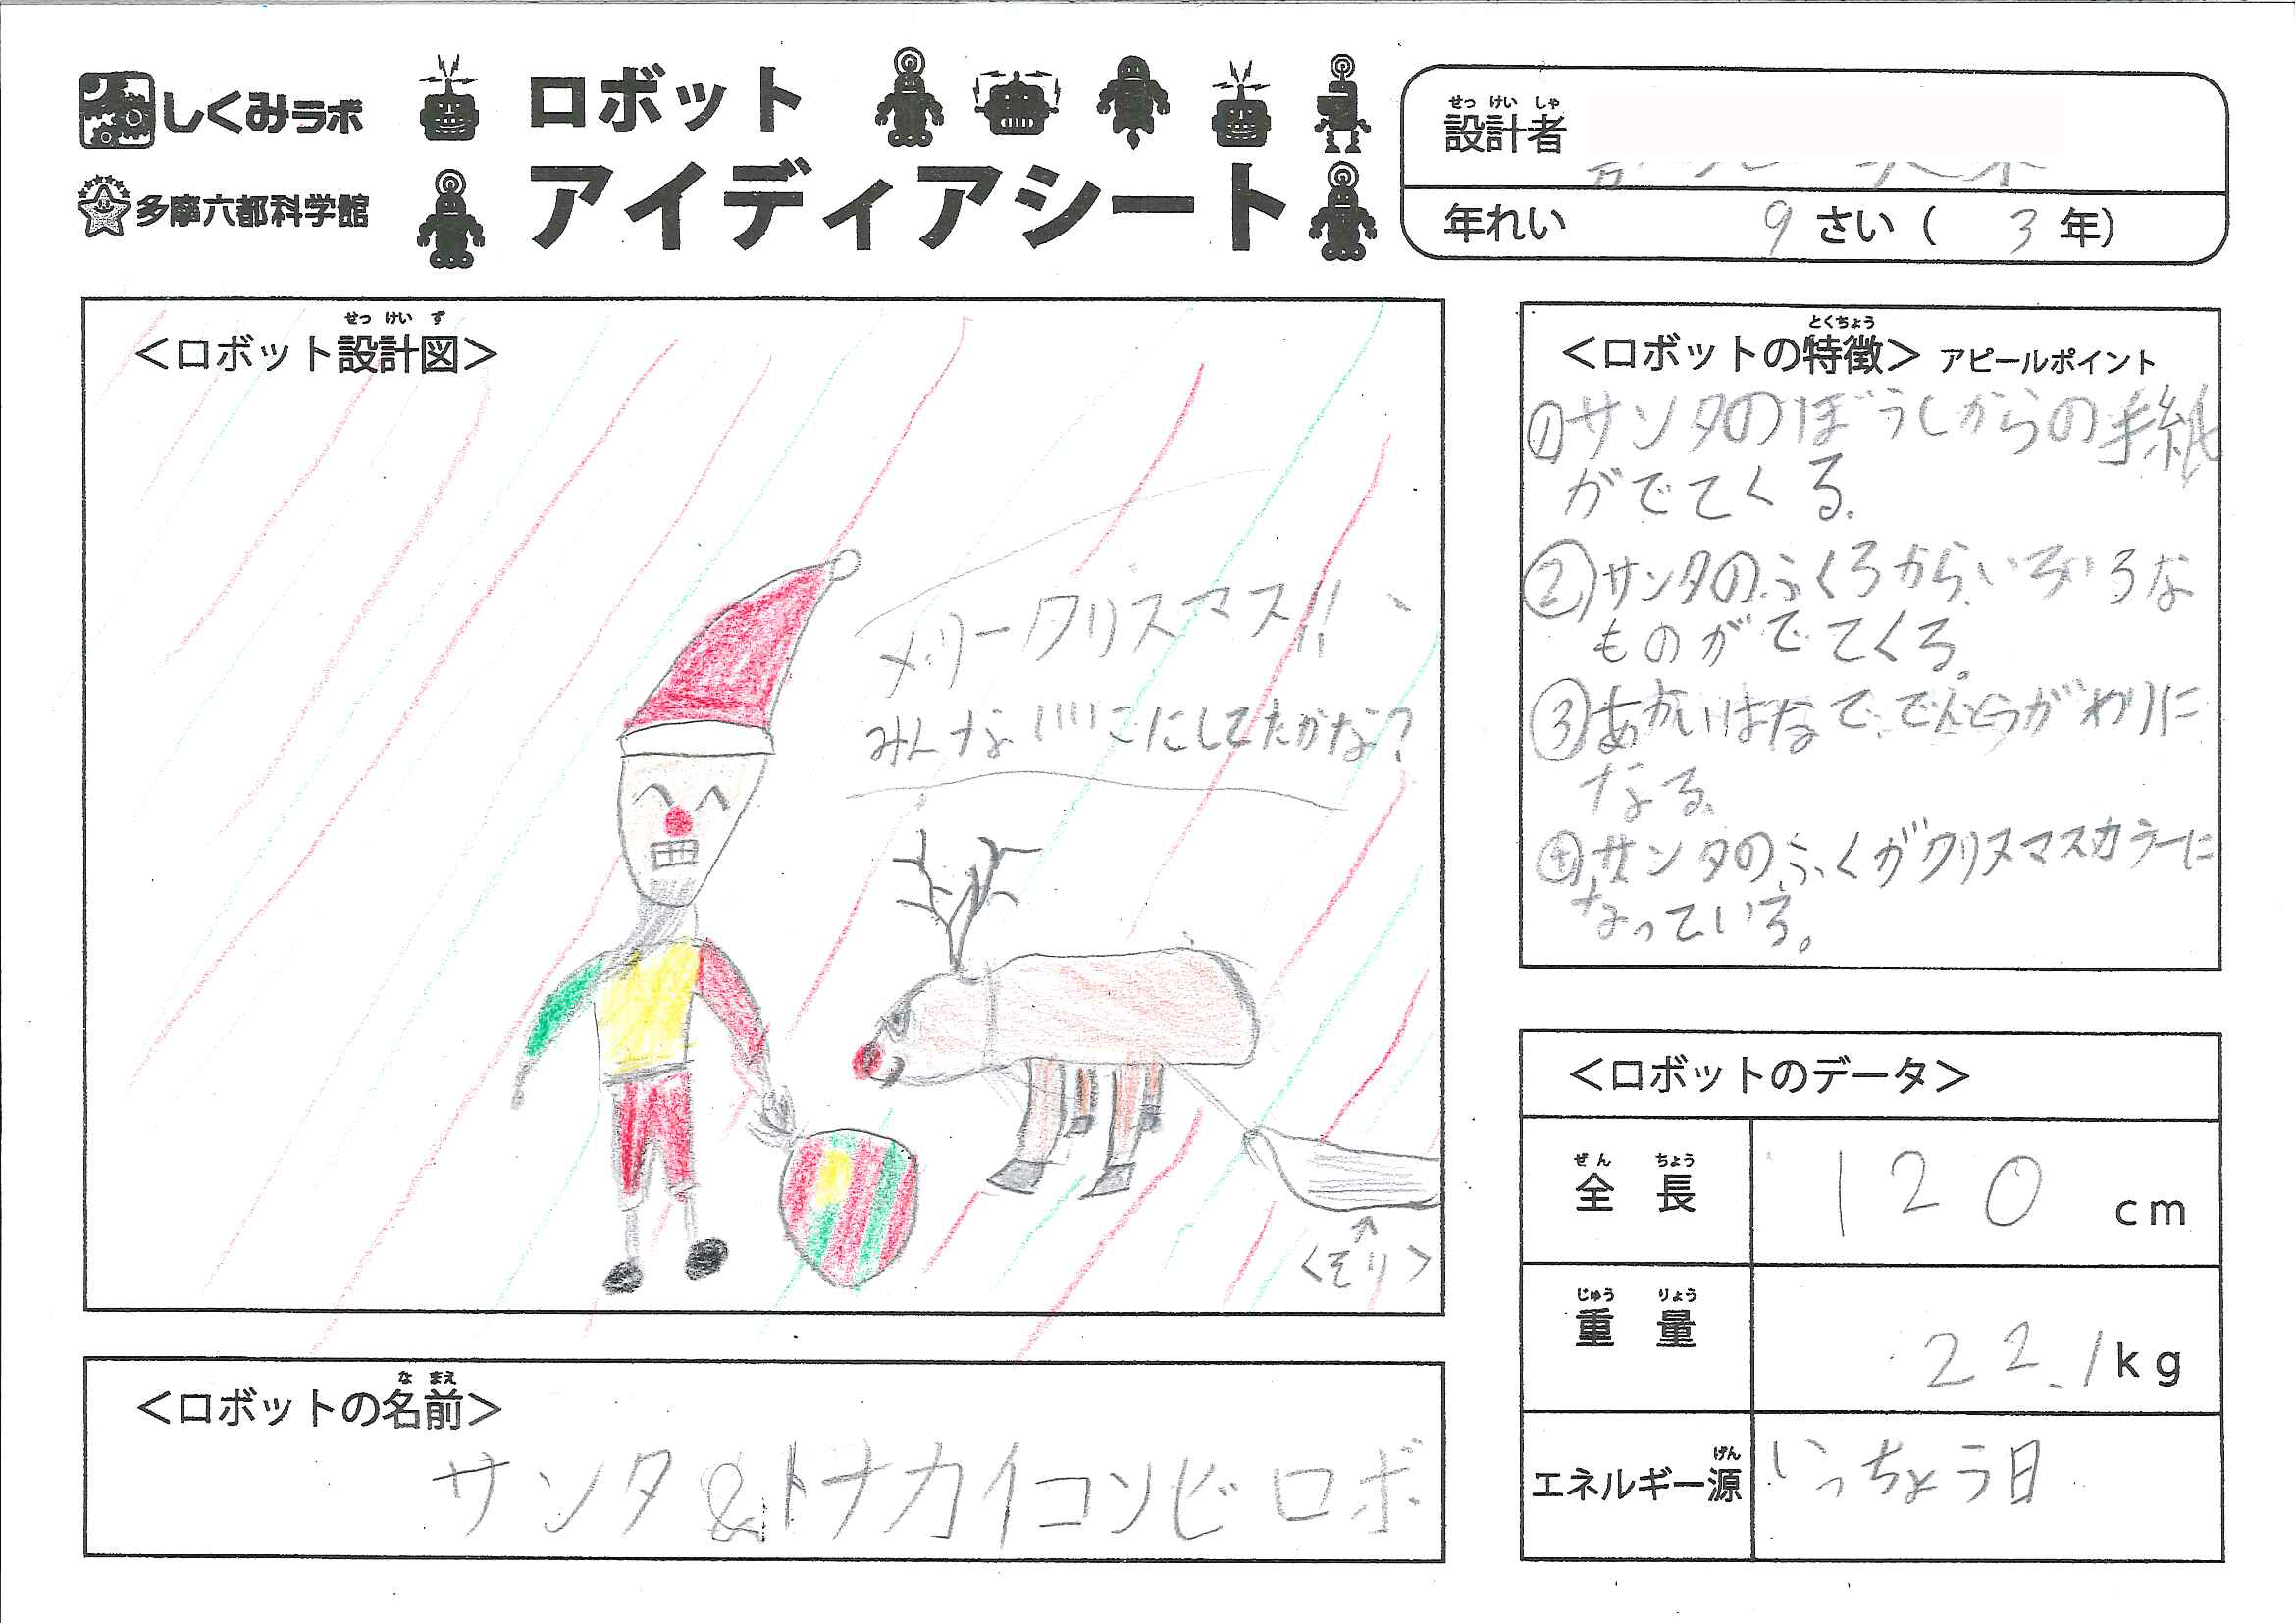 しくみラボ
多摩六都科学館
ロボット
アイディアシート
せっ けい しゃ
設計者
年れい 9 さい ( 3 年)
せっ けい ず
<ロボット設計図>
メリークリスマス!!
みんないいこにしてたかな?
<そり>
な まえ
<ロボットの名前>
サンタ&トナカイコンビロボ
とくちょう
<ロボットの特徴> アピールポイント
①サンタのぼうしからの手紙
がでてくる。
②サンタのふくろからいろいろな
ものがでてくる。
③あかいはなででんとうがわりに
なる。
④サンタのふくがクリスマスカラーに
なっている。
<ロボットのデータ>
ぜん ちょう
全長 120 cm
じゅう りょう
重量 22.1 kg
げん
エネルギー源 いっちょう日